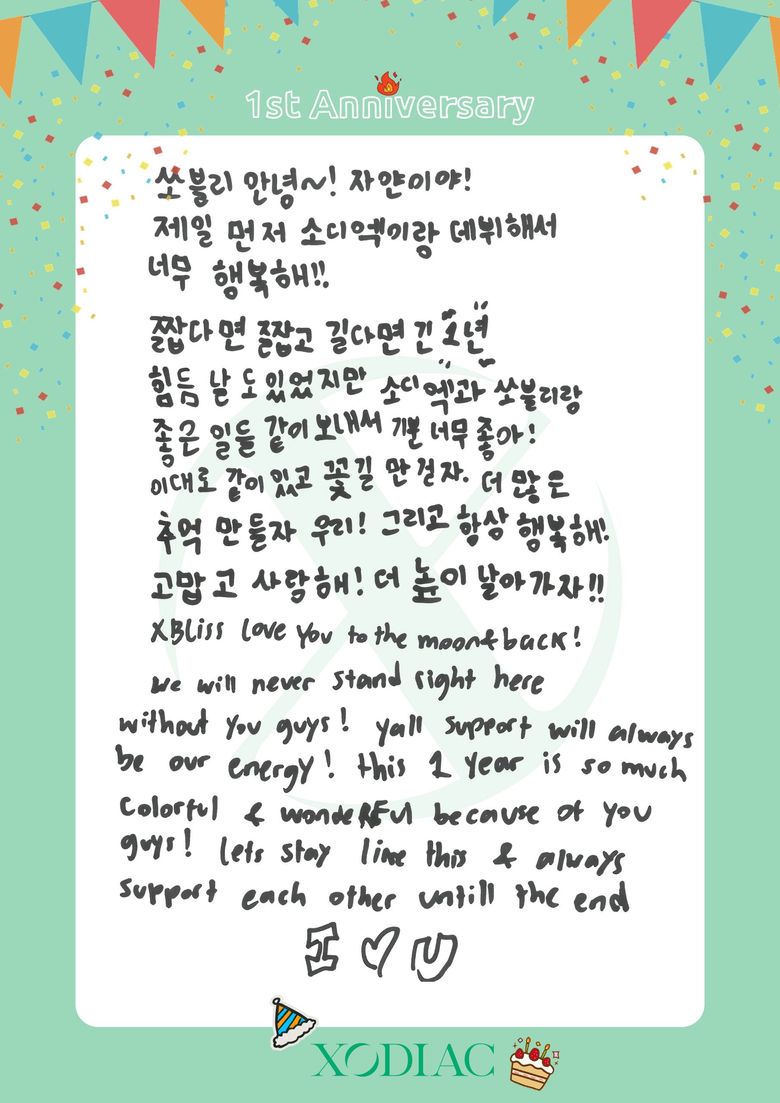 1st Anniversary
쏘블리 안녕~! 자얀이야!
제일 먼저 소디엑이랑 데뷔해서
너무 행복해!!
짧다면 짧고 길다면 긴 1년
힘듬 날 도 있었지만 소디엑과 쏘블리랑
좋은 일들 같이 보내서 기분 너무 좋아!
이대로 같이 있고 꽃길 만 걷자. 더 많은
추억 만들자 우리! 그리고 항상 행복해!
고맙고 사랑해! 더 높이 날아가자!!
XBLiss love you to the moon & back!
we will never stand right here
without you guys! yall support will always
be our energy! this 1 year is so much
colorful & wonderful because of you
guys! lets stay like this & always
support each other untill the end
I ♡ U
XODIAC